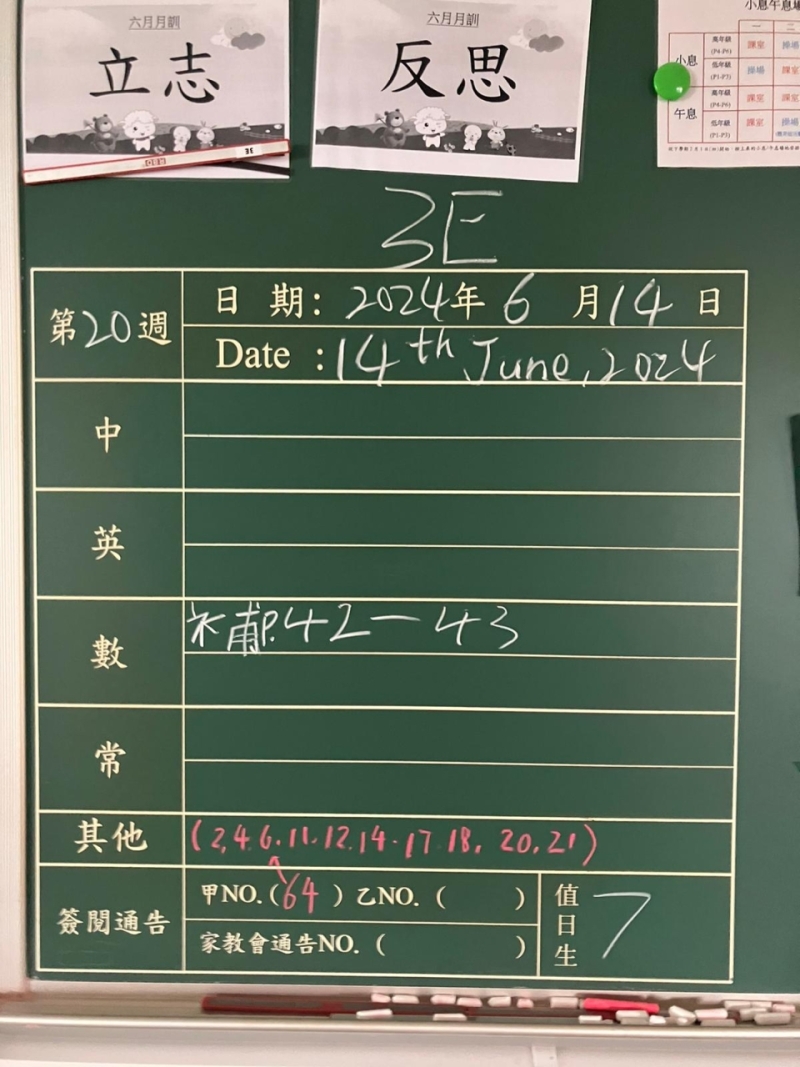 六月月訓
立志
六月月訓
反思
小息午息場
一 二
小息 高年級 (P4-P6) 課室 操場
低年級 (P1-P3) 操場 課室
午息 高年級 (P4-P6) 課室 課室
低年級 (P1-P3) 課室 操場
3E
3E
第20週
日 期: 2024年 6 月 14 日
Date : 14th June, 2024
中
英
數 補P.42-43
常
其他 (2,4.6.11.12.14.17.18. 20.21)
簽閱通告 甲NO.(64) 乙NO. ( )
家教會通告NO. ( )
值日生 7